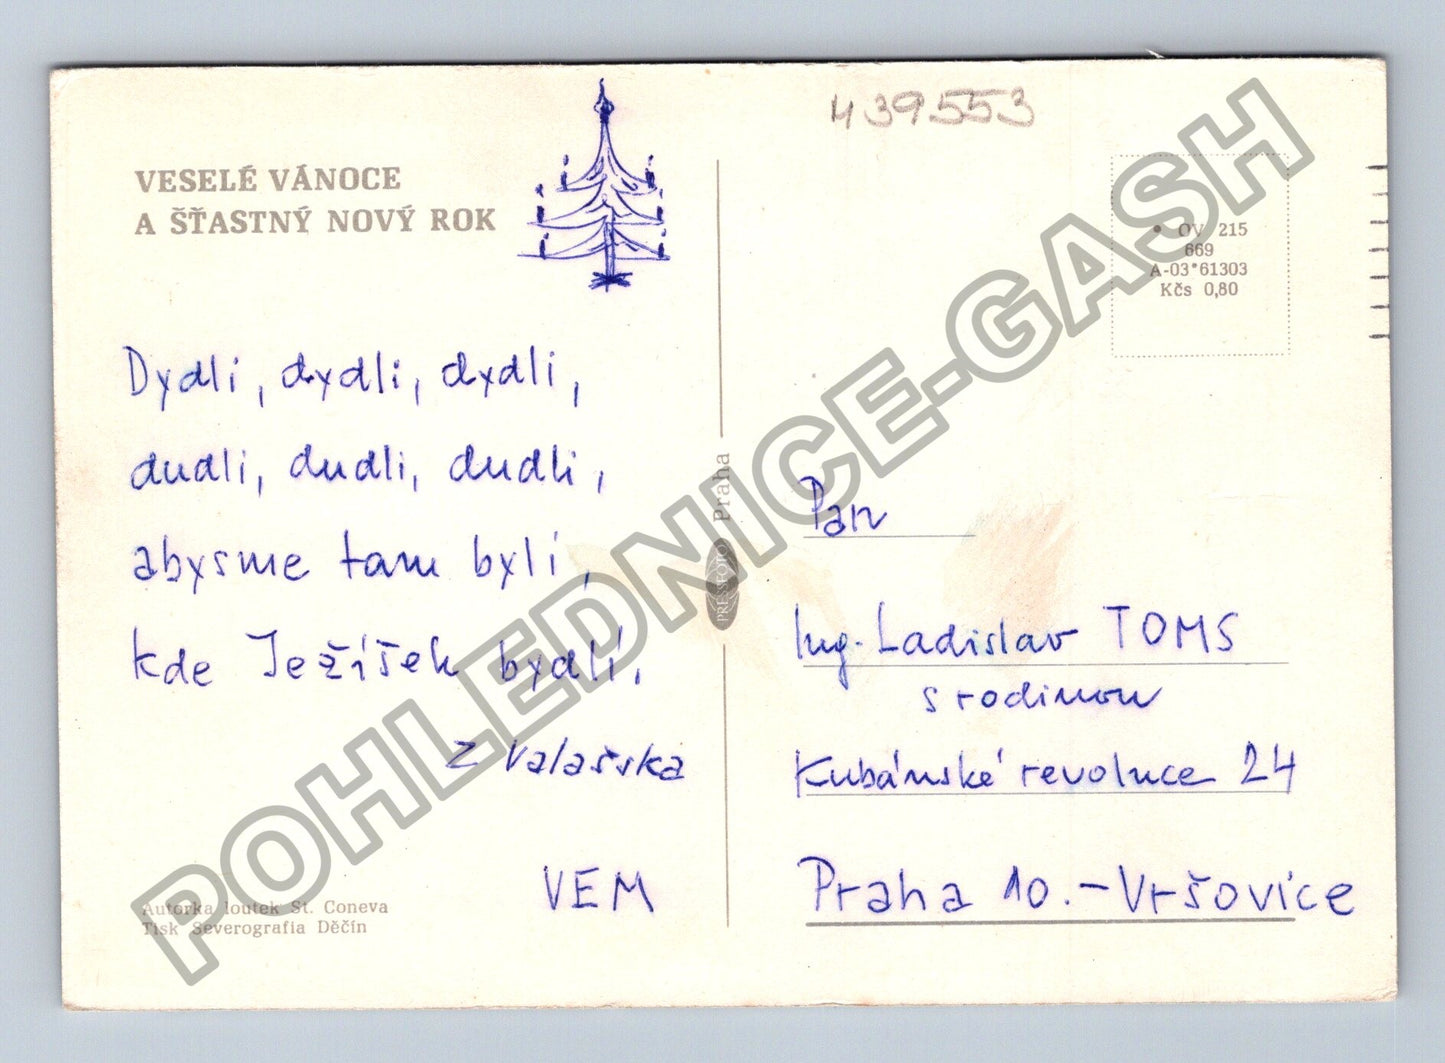 439553
VESELÉ VÁNOCE
A ŠŤASTNÝ NOVÝ ROK
• OV 215
669
A-03*61303
Kčs 0,80
Dydli, dydli, dydli,
dudli, dudli, dudli,
abysme tam byli,
kde Ježíšek bydlí,
z Valašska
VEM
Autorka loutek St. Coneva
Tisk Severografia Děčín
PRESSFOTO Praha
Pan
Ing. Ladislav TOMS
s rodinou
Kubánské revoluce 24
Praha 10. - Vršovice
POHLEDNICE-GASH